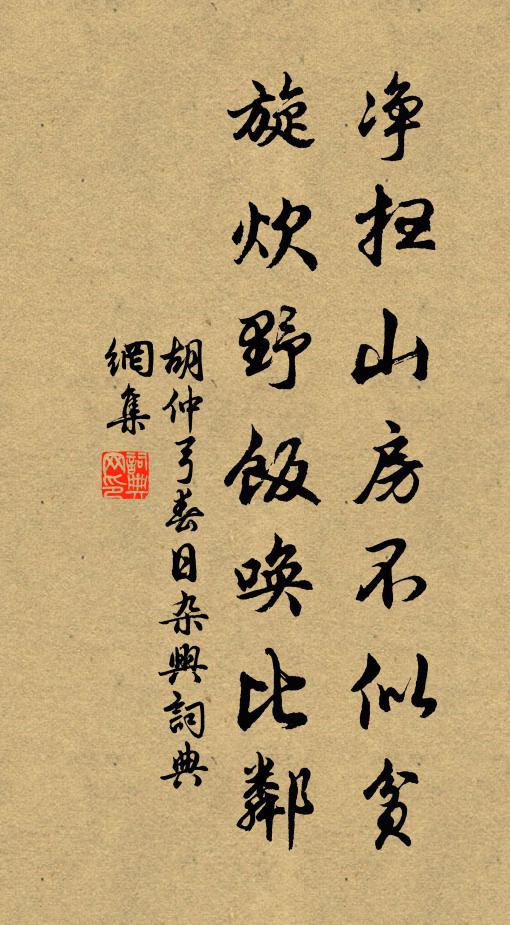 净扫山房不似贫
旋炊野饭唤比鄰
胡仲弓春日杂興詞典
網集
詞典网印